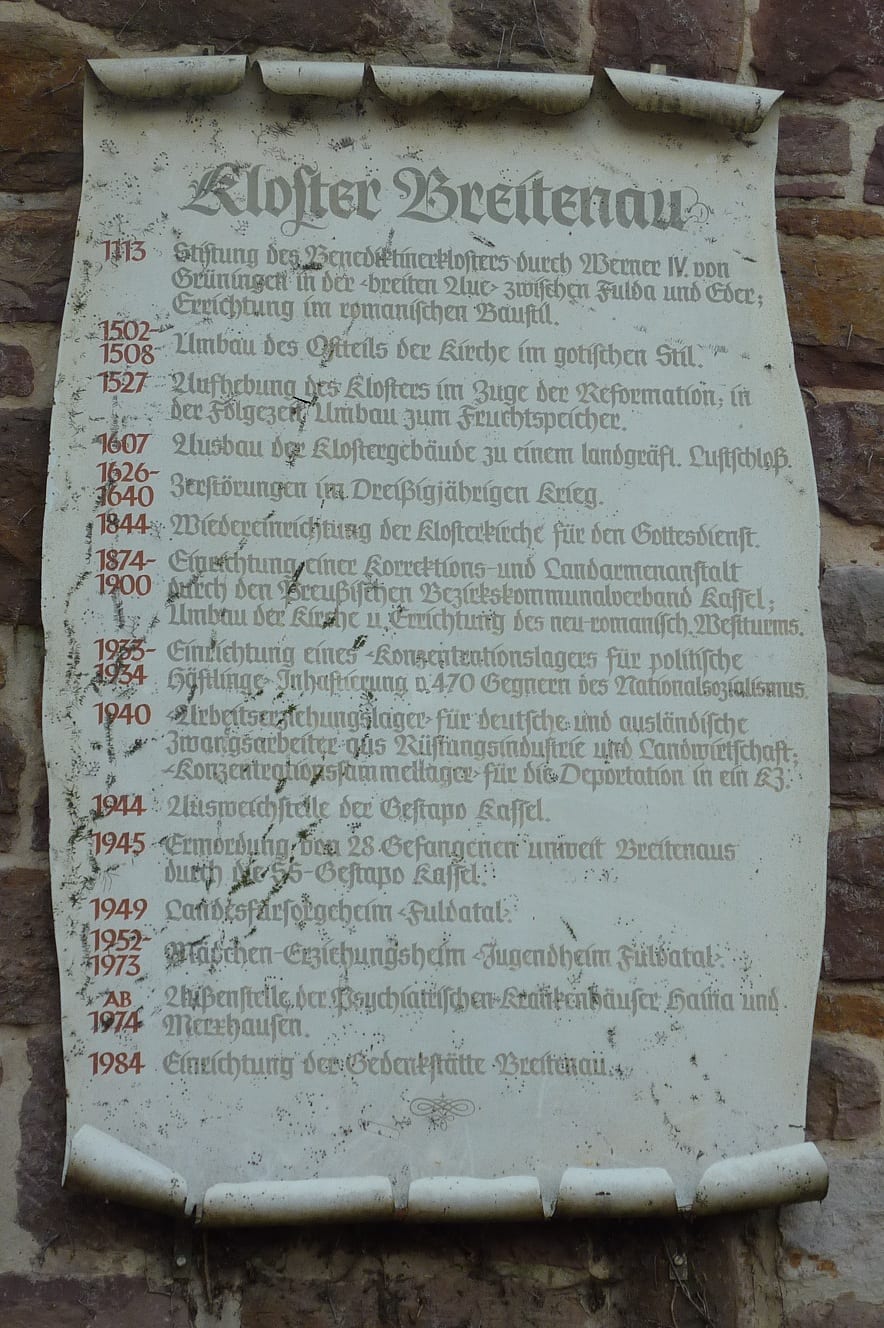 Kloster Breitenau
1113 Stiftung des Benediktinerklosters durch Werner IV. von
Grüningen in der ‹breiten Aue› zwischen Fulda und Eder;
Errichtung im romanischen Baustil.
1502-
1508 Umbau des Ostteils der Kirche im gotischen Stil.
1527 Aufhebung des Klosters im Zuge der Reformation; in
der Folgezeit Umbau zum Fruchtspeicher.
1607 Ausbau der Klostergebäude zu einem landgräfl. Lustschloß.
1626-
1640 Zerstörungen im Dreißigjährigen Krieg.
1844 Wiedereinrichtung der Klosterkirche für den Gottesdienst.
1874- Einrichtung einer Korrektions- und Landarmenanstalt
1900 durch den Preußischen Bezirkskommunalverband Kassel;
Umbau der Kirche u. Errichtung des neu-romanisch. Westturms.
1933- Einrichtung eines ‹Konzentrationslagers für politische
1934 Häftlinge› Inhaftierung v. 470 Gegnern des Nationalsozialismus.
1940 ‹Arbeitserziehungslager› für deutsche und ausländische
Zwangsarbeiter aus Rüstungsindustrie und Landwirtschaft;
‹Konzentrationssammellager› für die Deportation in ein KZ.
1944 Ausweichstelle der Gestapo Kassel.
1945 Ermordung von 28 Gefangenen unweit Breitenaus
durch die SS-Gestapo Kassel.
1949 Landesfürsorgeheim ‹Fuldatal›.
1952-
1973 Mädchen-Erziehungsheim ‹Jugendheim Fuldatal›.
AB Außenstelle der Psychiatrischen Krankenhäuser Haina und
1974 Merxhausen.
1984 Einrichtung der Gedenkstätte Breitenau.